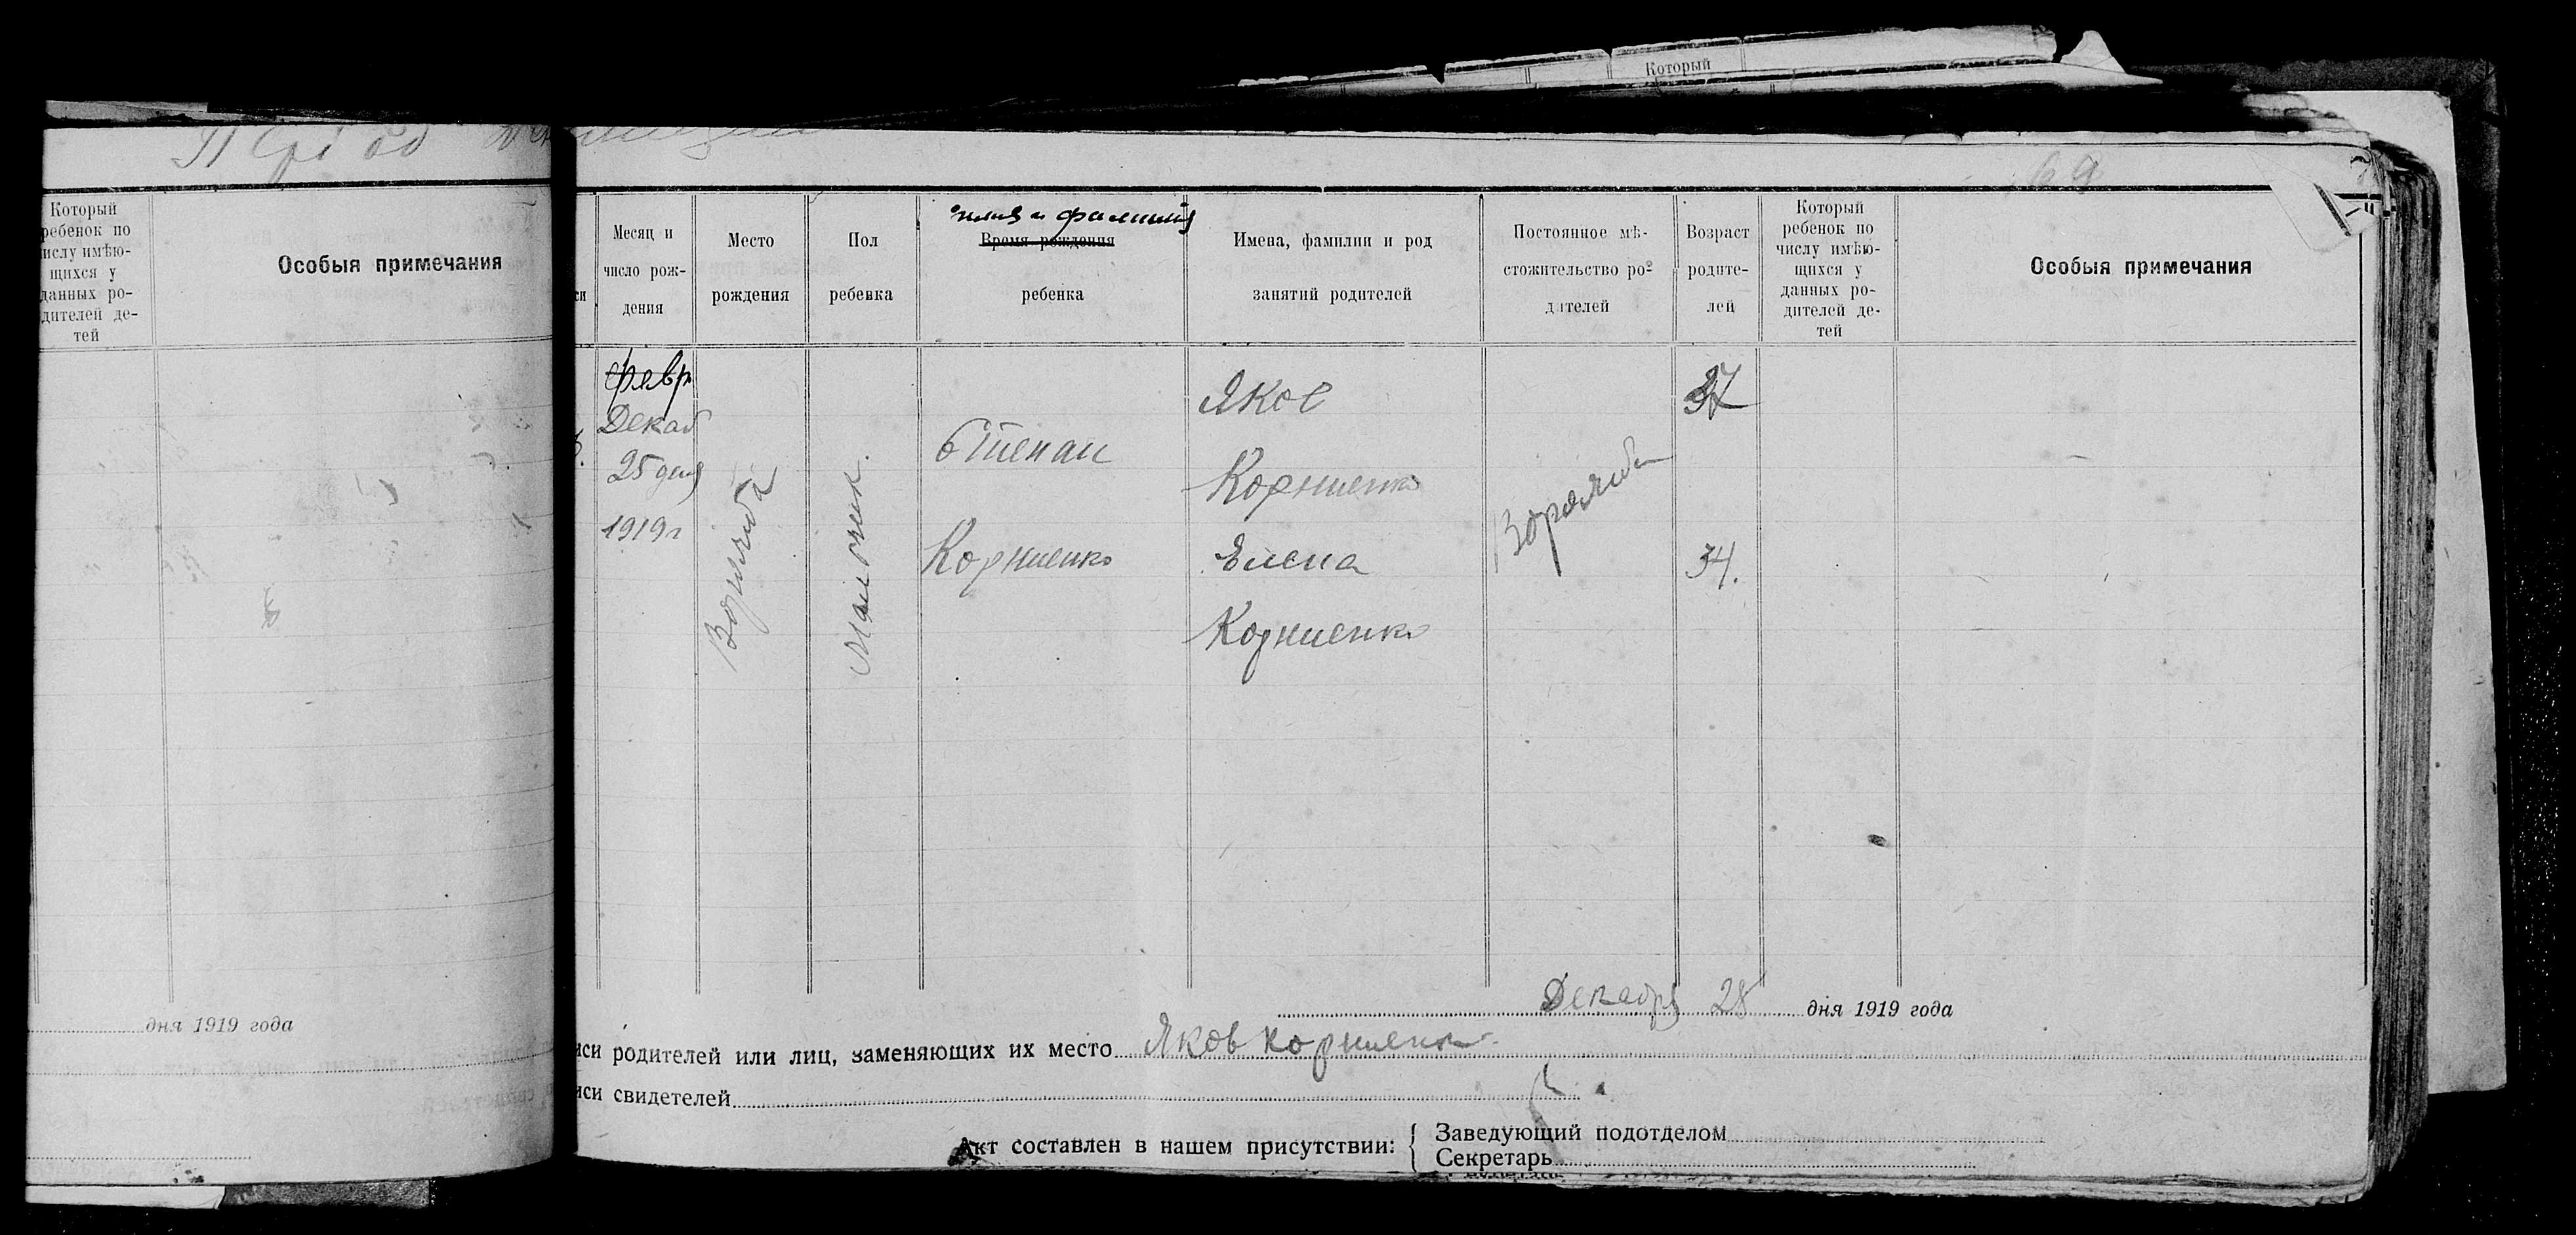 Который
Період
Который
ребенок по
числу имѣю-
щихся у
данных ро-
дителей де-
тей
Особыя примечания
дня 1919 года
69
си
Месяц и
число рож-
дения
Место
рождения
Пол
ребенка
имя и фамилия
Время рождения
ребенка
Имена, фамилии и род
занятий родителей
Постоянное мѣ-
стожительство ро-
дителей
Возраст
родите-
лей
Который
ребенок по
числу имѣю-
щихся у
данных ро-
дителей де-
тей
Особыя примечания
февр
Декаб
25 дня
1919 г
Ворожба
Мальчик.
Степан
Корниенко
Яков
Корниенко
Елена
Корниенко
Ворожба
37
34.
Декабря 28 дня 1919 года
иси родителей или лиц, заменяющих их место Яков Корниенко
иси свидетелей
Акт составлен в нашем присутствии:
Заведующий подотделом
Секретарь